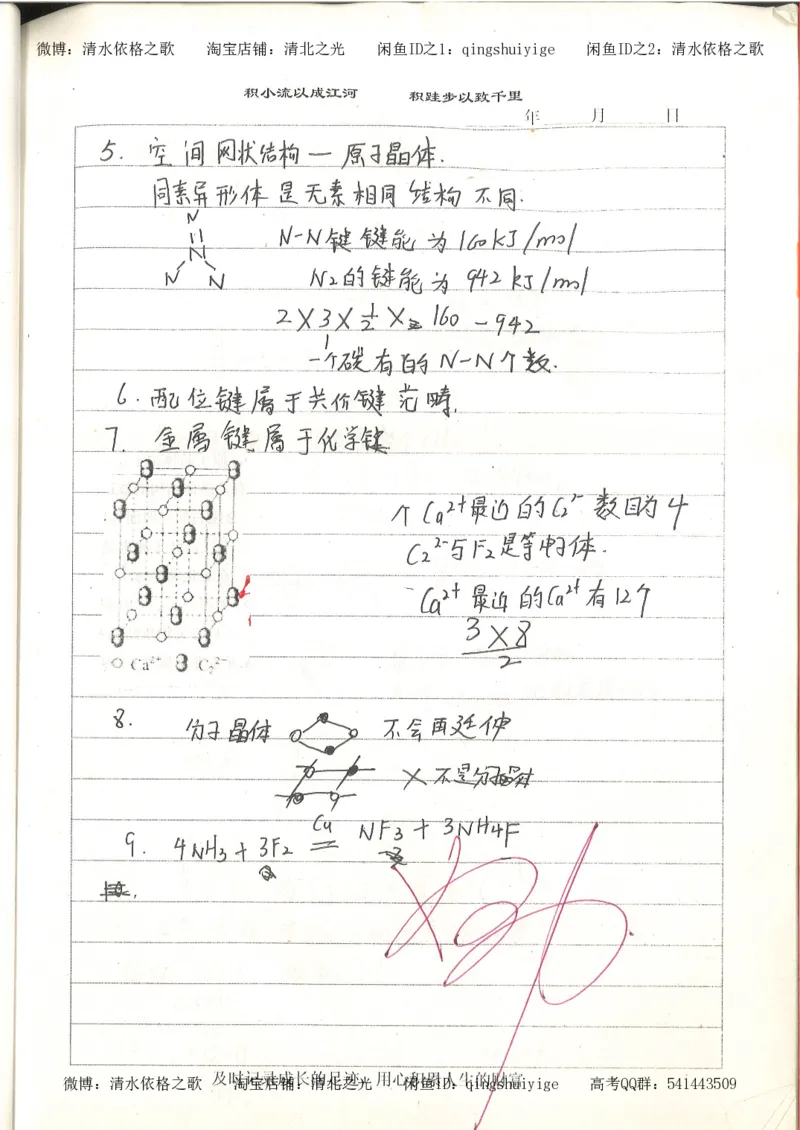 微博：清水依格之歌 淘宝店铺：清北之光 闲鱼ID之1：qingshuiyige 闲鱼ID之2：清水依格之歌
积小流以成江河 积跬步以致千里
年 月 日
5. 空间网状结构一原子晶体.
同素异形体是元素相同结构不同.
N
N
N N
N-N键键能为160kJ/mol
N2的键能为942kJ/mol
2×3×1/2×160-942
一个 有的N-N个数.
6.配位键属于共价键范畴.
7. 金属键属于化学键
个Ca²⁺最近的C₂²⁻数目为4
C₂²⁻与F₂是等电子体.
Ca²⁺最近的Ca²⁺有12个
3×8
2
Ca²⁺ C₂²⁻
8. 分子晶体 不会再延伸
× 不是分子晶体
9. 4NH3+3F2 Cu = NF3+3NH4F
及时记录成长的足迹 用心积累人生的财富
微博：清水依格之歌 淘宝店铺：清北之光 闲鱼ID：qingshuiyige 高考QQ群：541443509